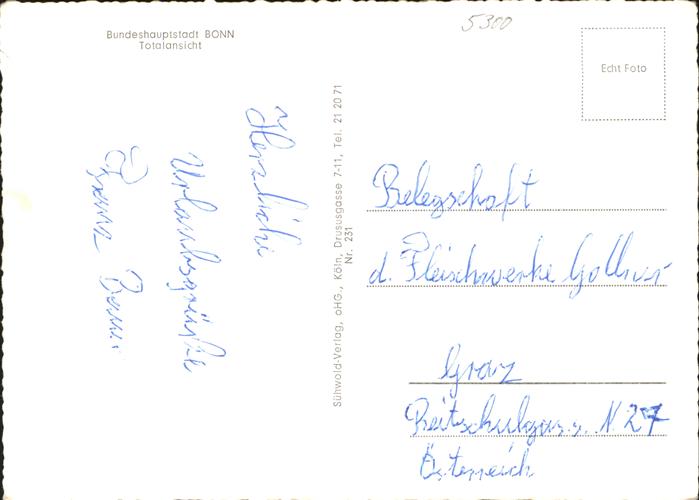 Bundeshauptstadt BONN
Totalansicht
5300
Echt Foto
Herzliche
Urlaubsgrüße
Franz
Sühwold-Verlag, oHG., Köln, Drususgasse 7-11, Tel. 21 20 71
Nr. 231
Belegschaft
d. Fleischwerke
Graz
Reitschulgasse N 27
Österreich